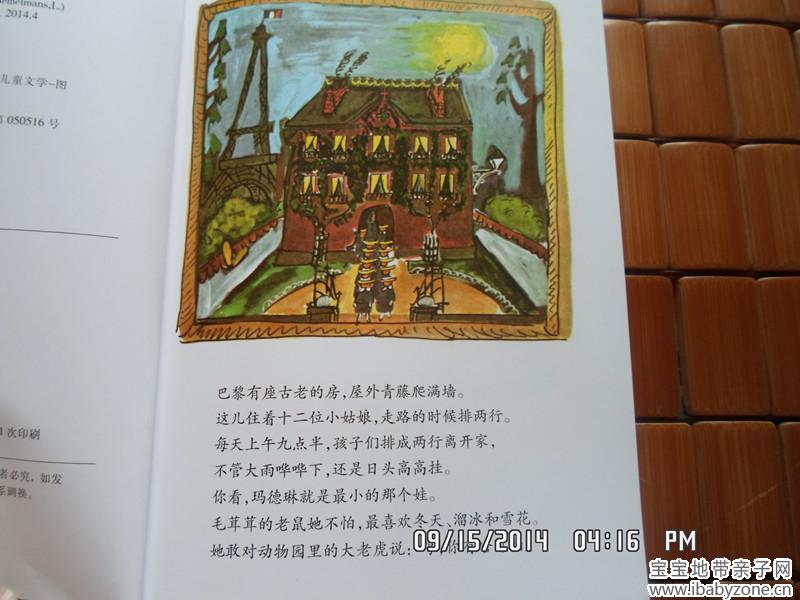 emelmans,L.)
. 2014.4
儿童文学-图
第 050516 号
次印刷
者必究，如发
系调换。
巴黎有座古老的房，屋外青藤爬满墙。
这儿住着十二位小姑娘，走路的时候排两行。
每天上午九点半，孩子们排成两行离开家，
不管大雨哗哗下，还是日头高高挂。
你看，玛德琳就是最小的那个娃。
毛茸茸的老鼠她不怕，最喜欢冬天、溜冰和雪花。
她敢对动物园里的大老虎说：
09/15/2014 04:16 PM
宝宝地带亲子网
www.ibabyzone.cn